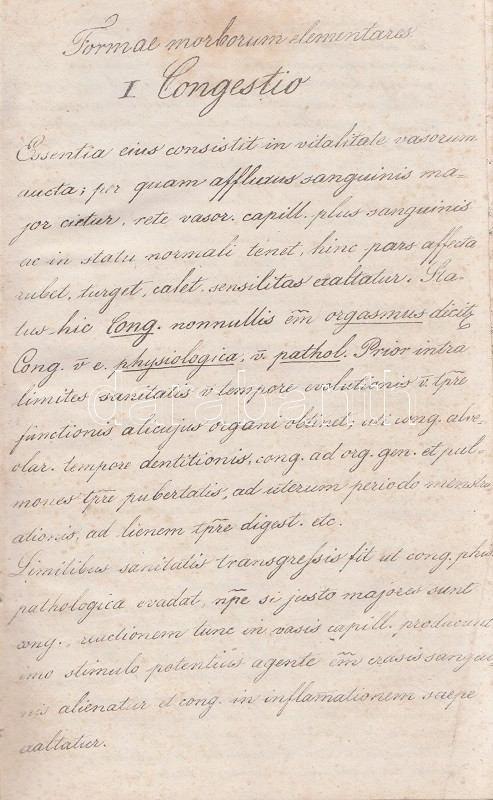 Formae morborum elementares
I Congestio
Essentia eius consistit in vitalitate vasorum
aucta; per quam affluxus sanguinis ma-
jor cietur, rete vasor. capill. plus sanguinis
ac in statu normali tenet, hinc pars affecta
rubet, turget, calet. sensilitas exaltatur. Sta-
tus hic Cong. nonnullis etm orgasmus dicitr
Cong. v e. physiologica, v. pathol. Prior intra
limites sanitatis v tempore evolutionis v. tpre
functionis alicujus organi obtinet; uti cong. alve-
olar. tempore dentitionis, cong. ad org. gen. et pul-
mones tpre pubertatis, ad uterum periodo menstru
ationis, ad lienem tpre digest. etc.
Limitibus sanitatis transgressis fit ut cong. phis
pathologica evadat, npe si justo majores sunt
cong., reactionem tunc in vasis capill. producunt
imo stimulo potentius agente etm crasis sangui-
nis alienatur et cong. in inflamationem saepe
exaltatur.
darabanth